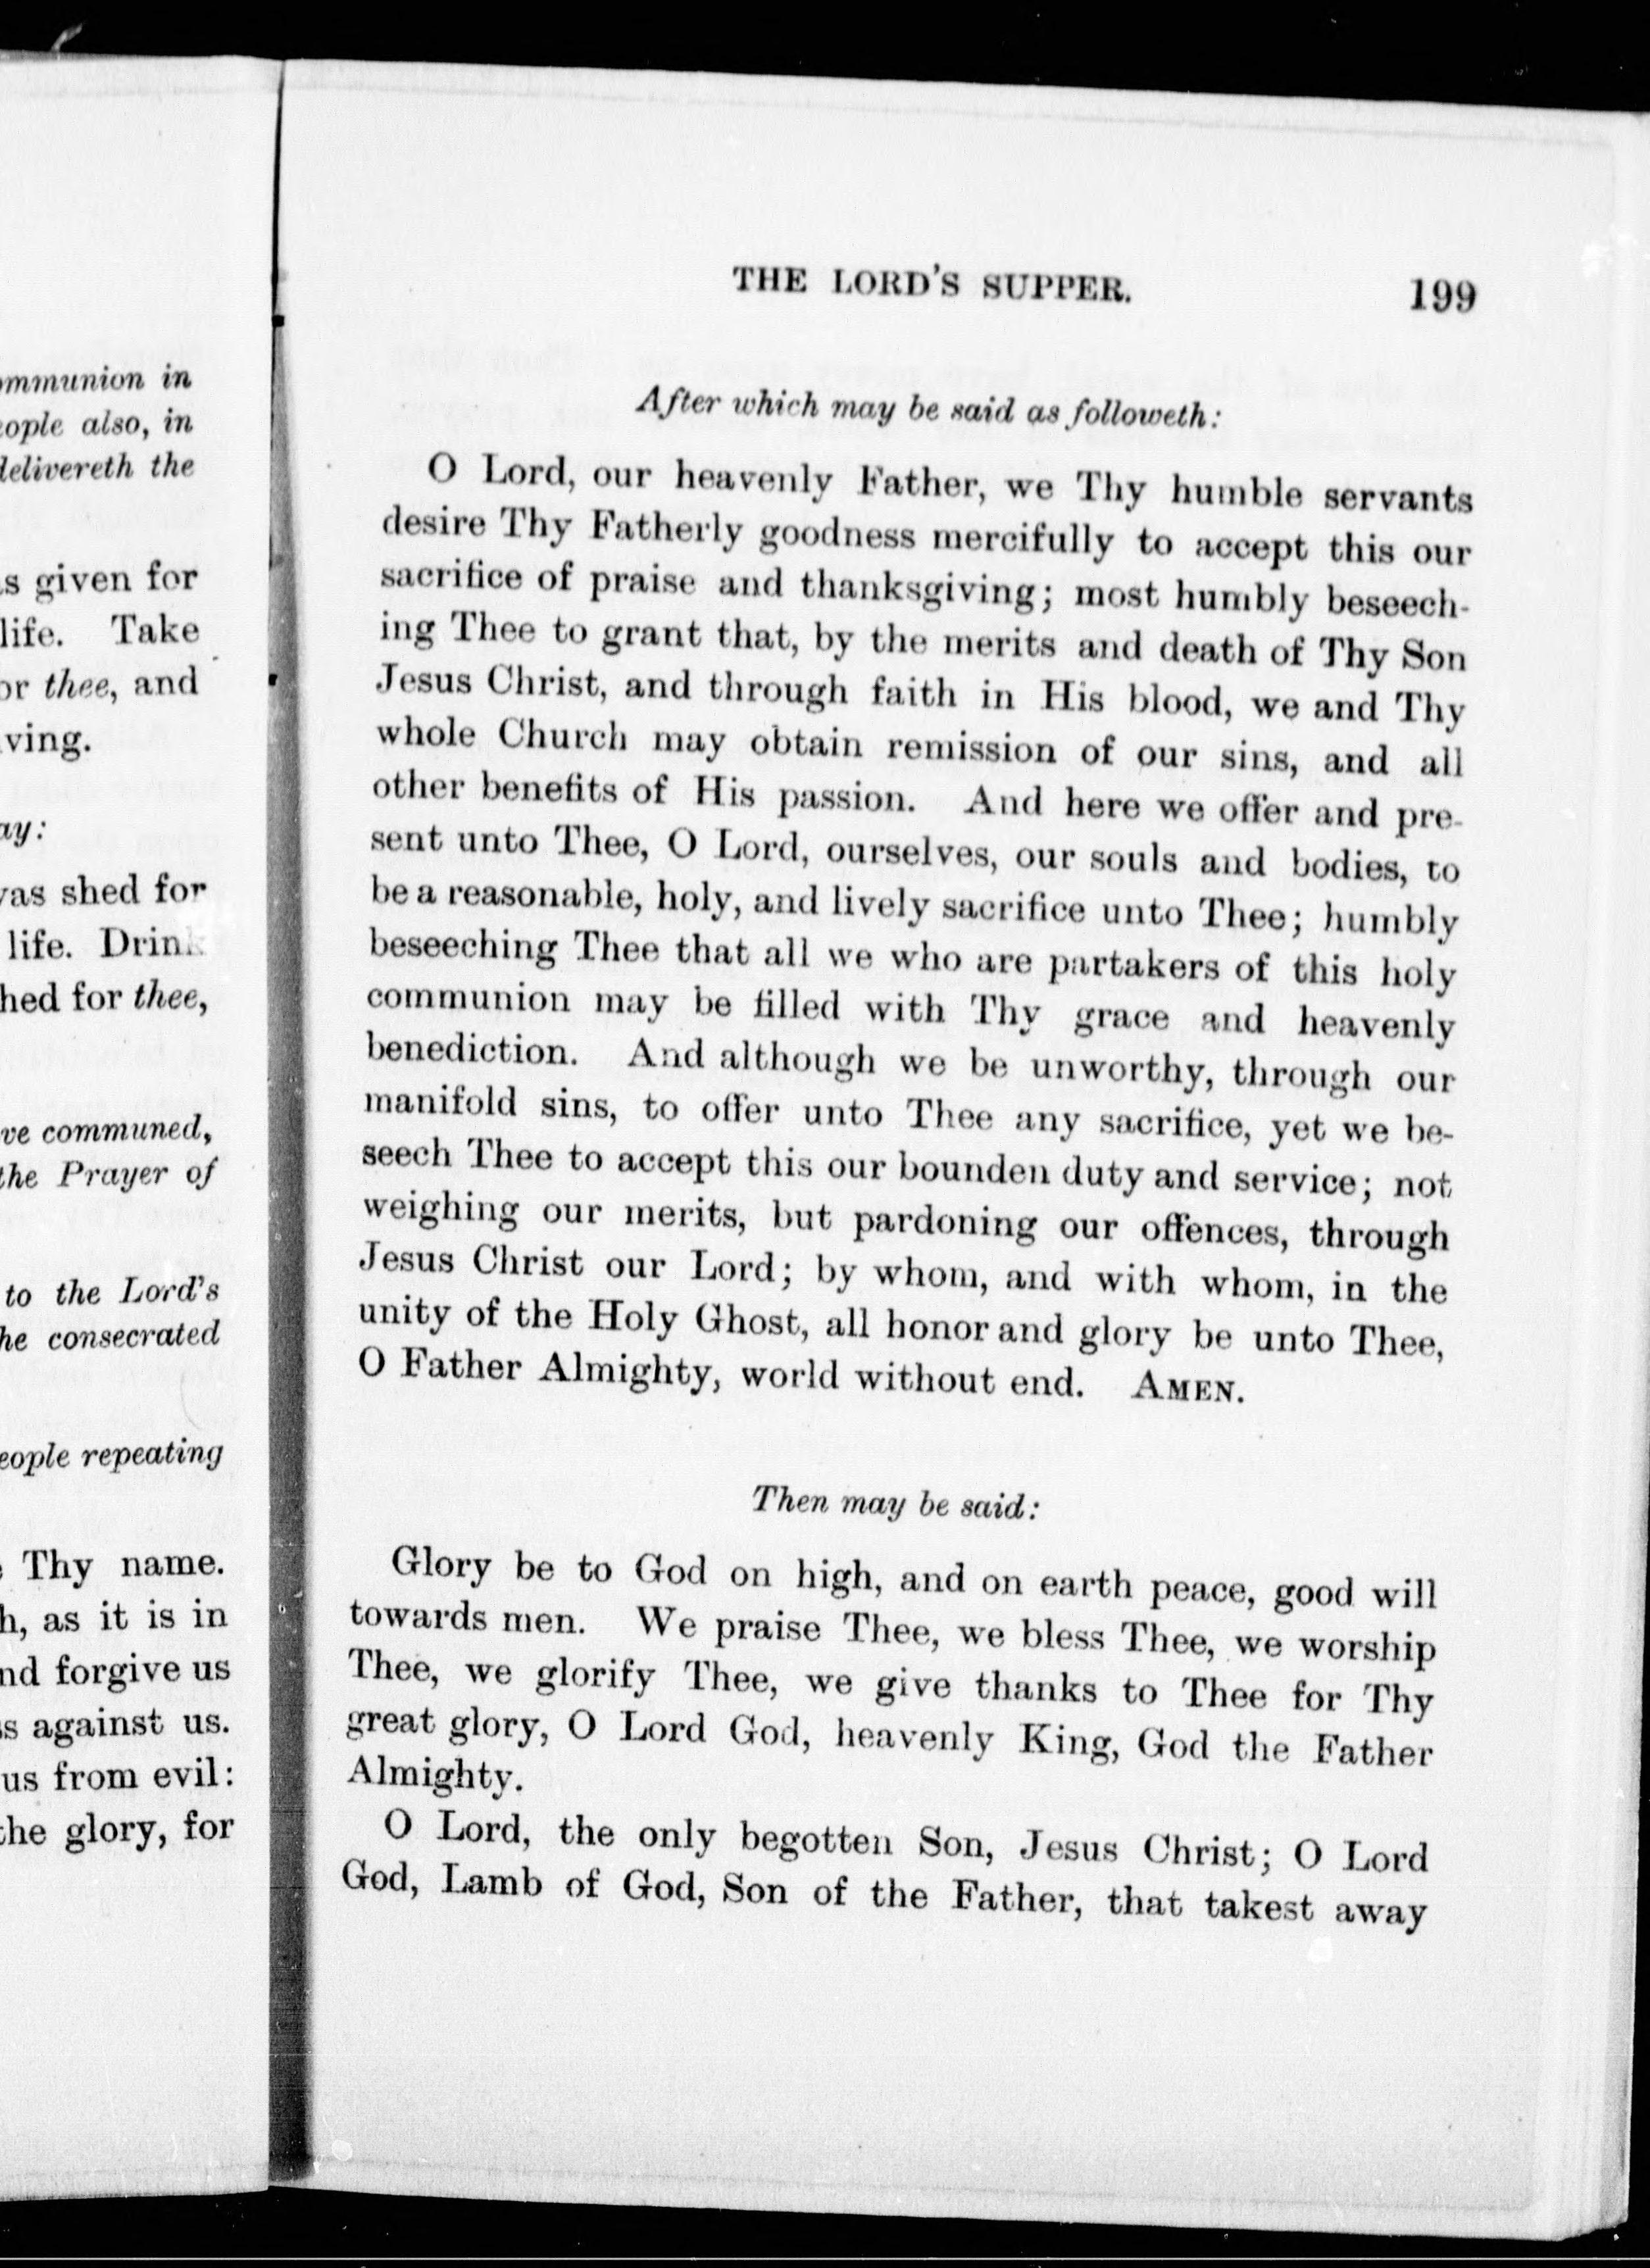 ommunion in
eople also, in
delivereth the
s given for
life. Take
or thee, and
ving.
ay:
was shed for
life. Drink
hed for thee,
ve communed,
the Prayer of
to the Lord's
he consecrated
eople repeating
Thy name.
h, as it is in
nd forgive us
s against us.
us from evil:
the glory, for
THE LORD'S SUPPER. 199
After which may be said as followeth:
O Lord, our heavenly Father, we Thy humble servants
desire Thy Fatherly goodness mercifully to accept this our
sacrifice of praise and thanksgiving; most humbly beseech-
ing Thee to grant that, by the merits and death of Thy Son
Jesus Christ, and through faith in His blood, we and Thy
whole Church may obtain remission of our sins, and all
other benefits of His passion. And here we offer and pre-
sent unto Thee, O Lord, ourselves, our souls and bodies, to
be a reasonable, holy, and lively sacrifice unto Thee; humbly
beseeching Thee that all we who are partakers of this holy
communion may be filled with Thy grace and heavenly
benediction. And although we be unworthy, through our
manifold sins, to offer unto Thee any sacrifice, yet we be-
seech Thee to accept this our bounden duty and service; not
weighing our merits, but pardoning our offences, through
Jesus Christ our Lord; by whom, and with whom, in the
unity of the Holy Ghost, all honor and glory be unto Thee,
O Father Almighty, world without end. AMEN.
Then may be said:
Glory be to God on high, and on earth peace, good will
towards men. We praise Thee, we bless Thee, we worship
Thee, we glorify Thee, we give thanks to Thee for Thy
great glory, O Lord God, heavenly King, God the Father
Almighty.
O Lord, the only begotten Son, Jesus Christ; O Lord
God, Lamb of God, Son of the Father, that takest away